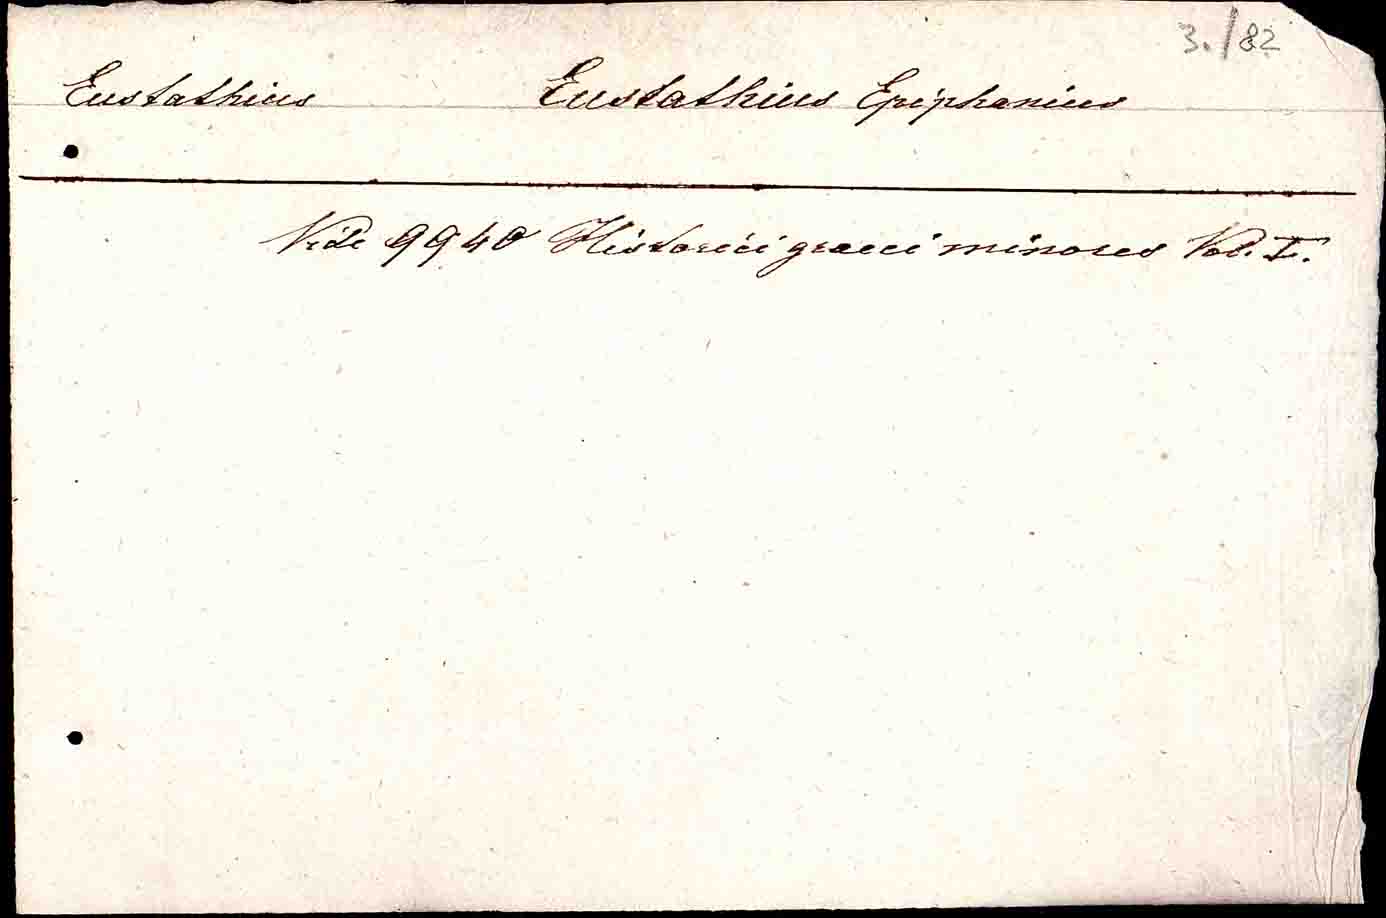 3./82
Eustathius Eustathius Epiphanius
Vide 9940 Historici graeci minores Vol. I.